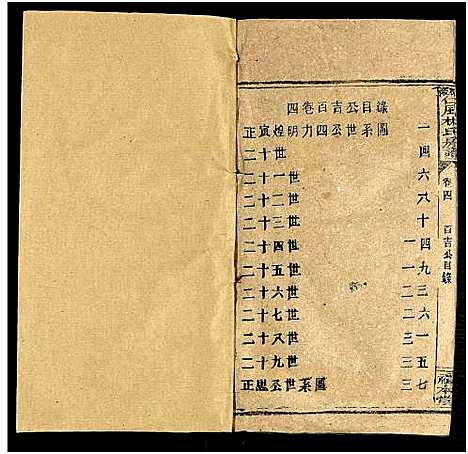 四卷百吉公目錄
正寅煌明力四公世系圖 一
二十世 四
二十一世 六
二十二世 八
二十三世 十
二十四世 一四
二十五世 一九
二十六世 二三
二十七世 二六
二十八世 三一
二十九世 三五
正思公世系圖 三七
林氏
卷四
百吉公目錄